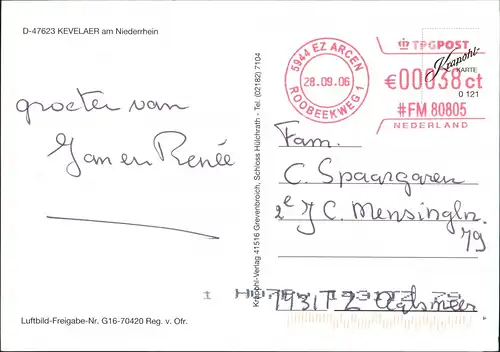 D-47623 KEVELAER am Niederrhein
groeten van
Jan en Renée
Luftbild-Freigabe-Nr. G16-70420 Reg. v. Ofr.
Krapohl-Verlag 41516 Grevenbroich, Schloss Hülchrath - Tel. (02182) 7104
5944 EZ ARCEN
28.09.06
ROOBEEKWEG 1
TPGPOST
Krapohl-
KARTE
0 121
€00038ct
#FM 80805
NEDERLAND
Fam.
C. Spaargaren
2e J C. Mensingln.
79
1431 TZ Aalsmeer